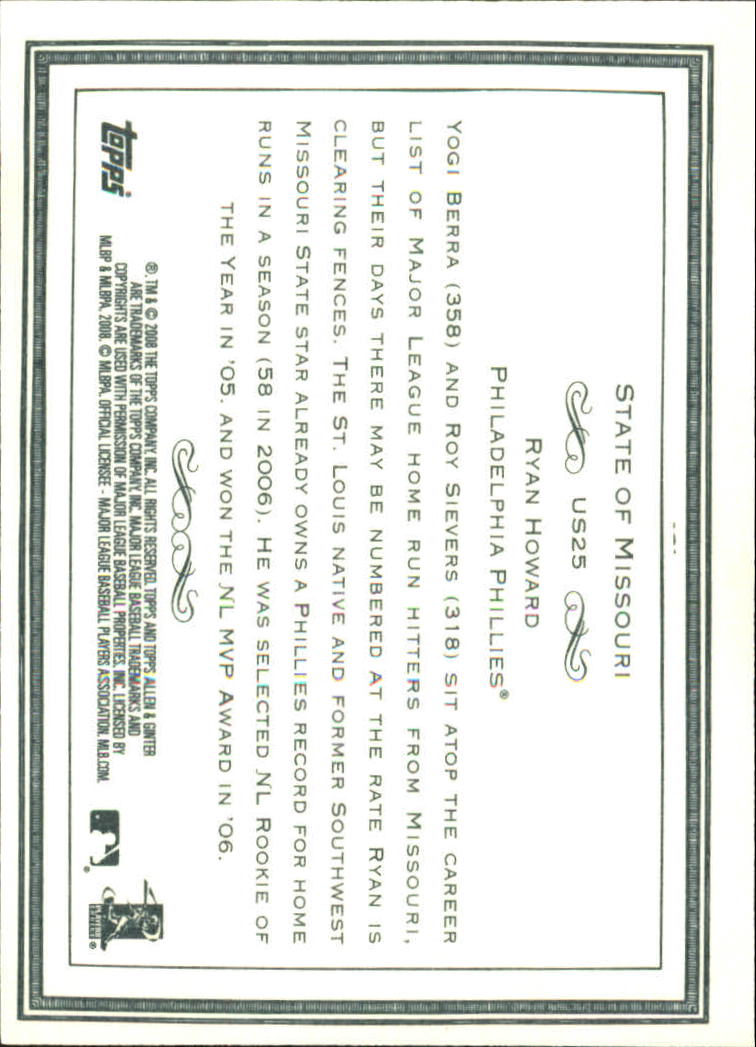 STATE OF MISSOURI
US25
RYAN HOWARD
PHILADELPHIA PHILLIES®
YOGI BERRA (358) AND ROY SIEVERS (318) SIT ATOP THE CAREER
LIST OF MAJOR LEAGUE HOME RUN HITTERS FROM MISSOURI,
BUT THEIR DAYS THERE MAY BE NUMBERED AT THE RATE RYAN IS
CLEARING FENCES. THE ST. LOUIS NATIVE AND FORMER SOUTHWEST
MISSOURI STATE STAR ALREADY OWNS A PHILLIES RECORD FOR HOME
RUNS IN A SEASON (58 IN 2006). HE WAS SELECTED NL ROOKIE OF
THE YEAR IN '05, AND WON THE NL MVP AWARD IN '06.
topps
®, TM & © 2008 THE TOPPS COMPANY, INC. ALL RIGHTS RESERVED. TOPPS AND TOPPS ALLEN & GINTER
ARE TRADEMARKS OF THE TOPPS COMPANY, INC. MAJOR LEAGUE BASEBALL TRADEMARKS AND
COPYRIGHTS ARE USED WITH PERMISSION OF MAJOR LEAGUE BASEBALL PROPERTIES, INC. LICENSED BY
MLBP & MLBPA, 2008. © MLBPA. OFFICIAL LICENSEE - MAJOR LEAGUE BASEBALL PLAYERS ASSOCIATION. MLB.COM.